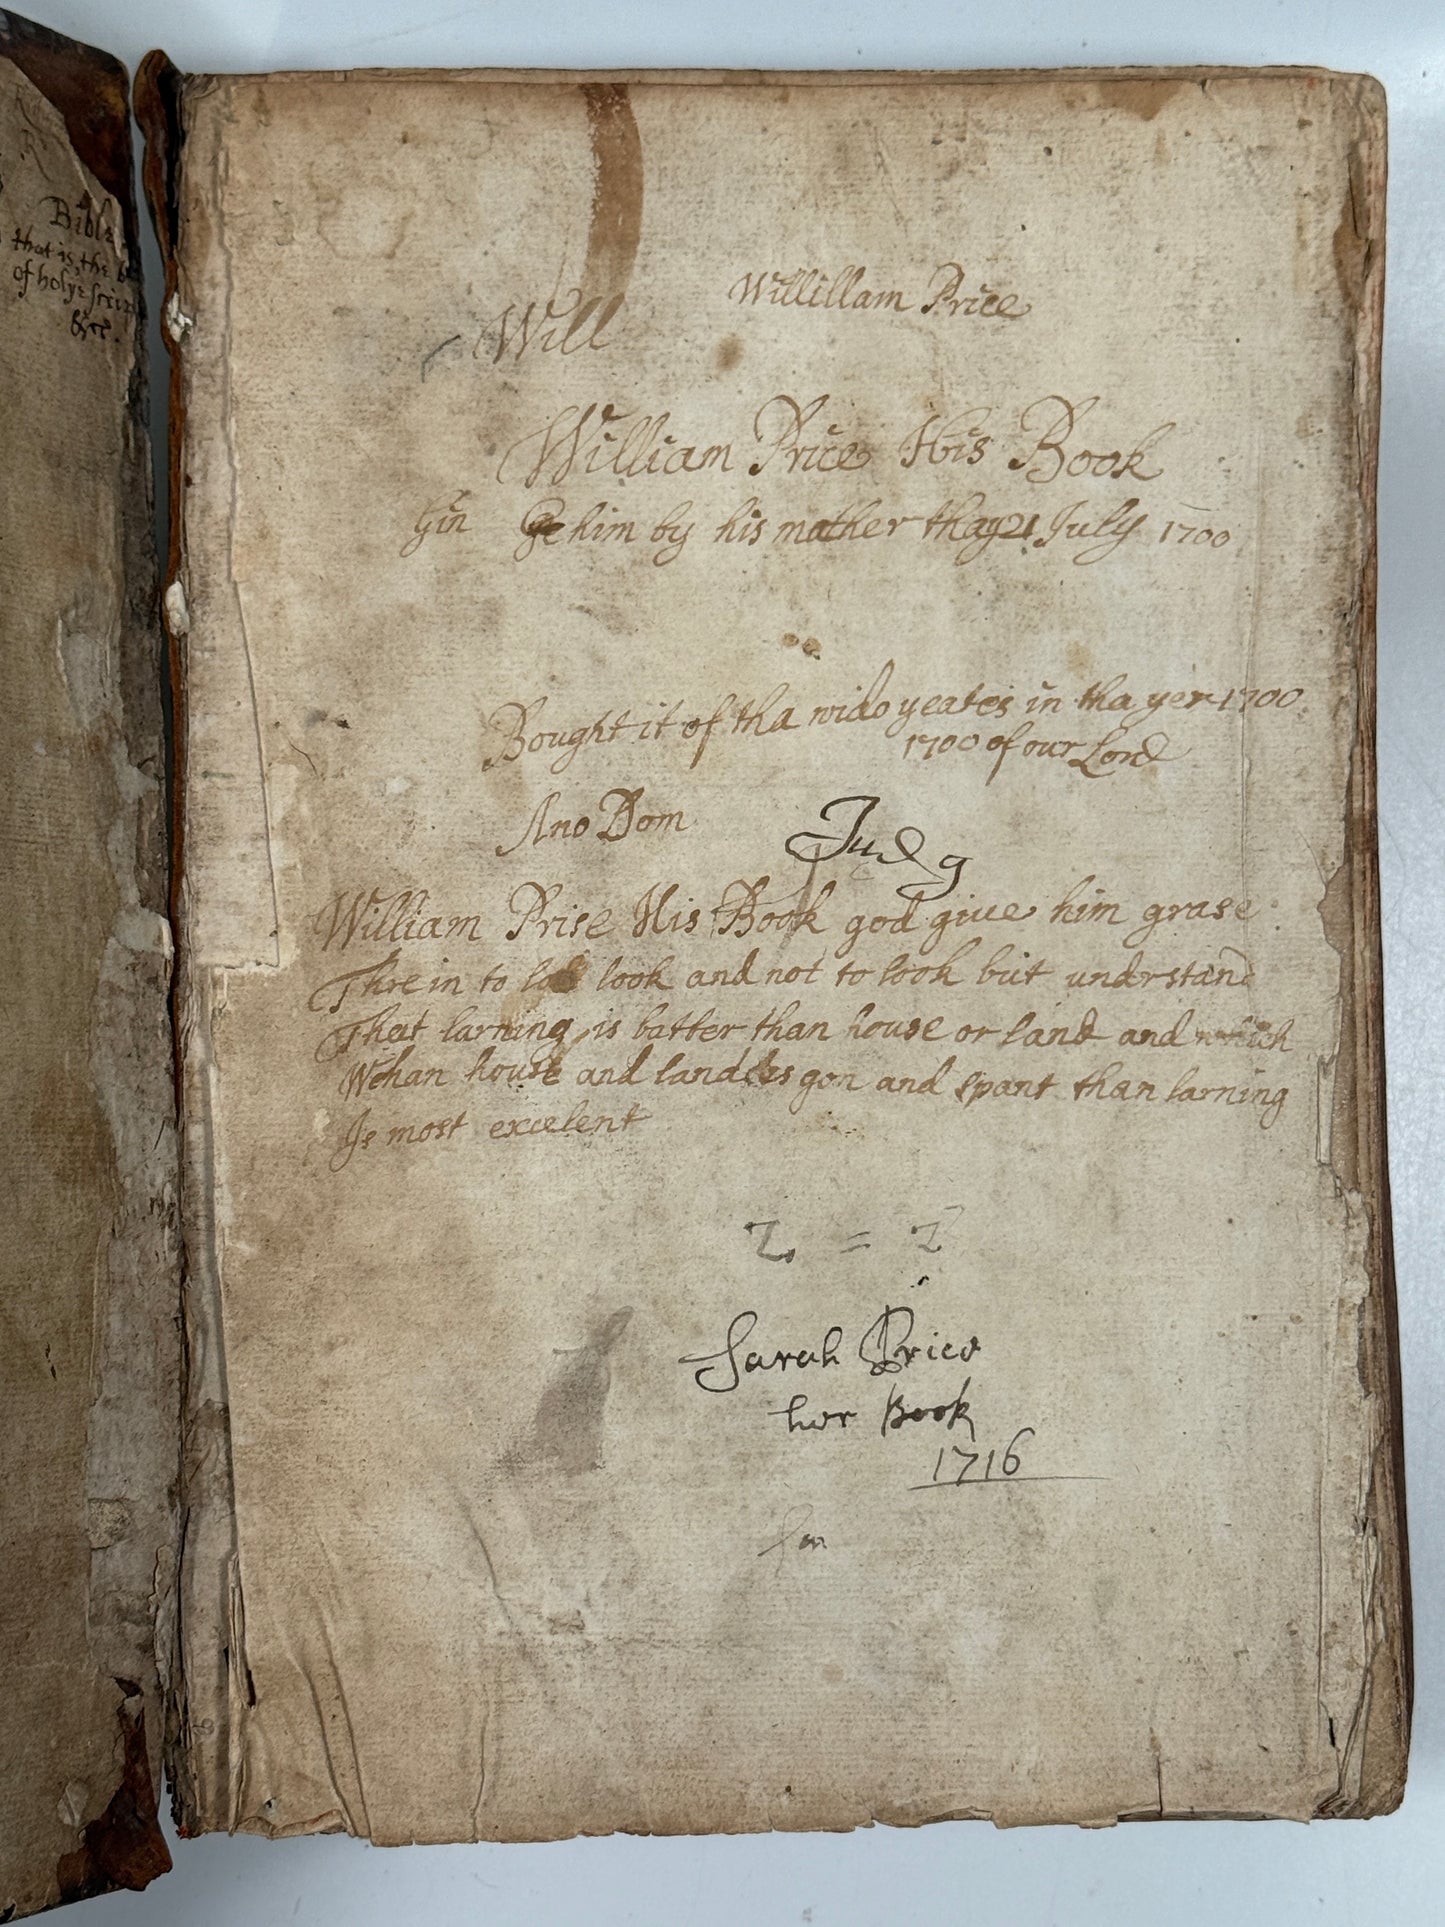 Bible
that is, the
of holye
Willillam Price
Will
William Price His Book
Gin Ge him by his mather thay 21 July 1700
Bought it of tha wido yeates in tha yer 1700
1700 of our Lord
Ano Dom
Judg
William Prise His Book god give him grase
Thre in to look and not to look but understand
That larning is batter than house or land and which
Whan house and land is gon and spant than larning
Is most excelent
2 = 2
Sarah Price
her Book
1716